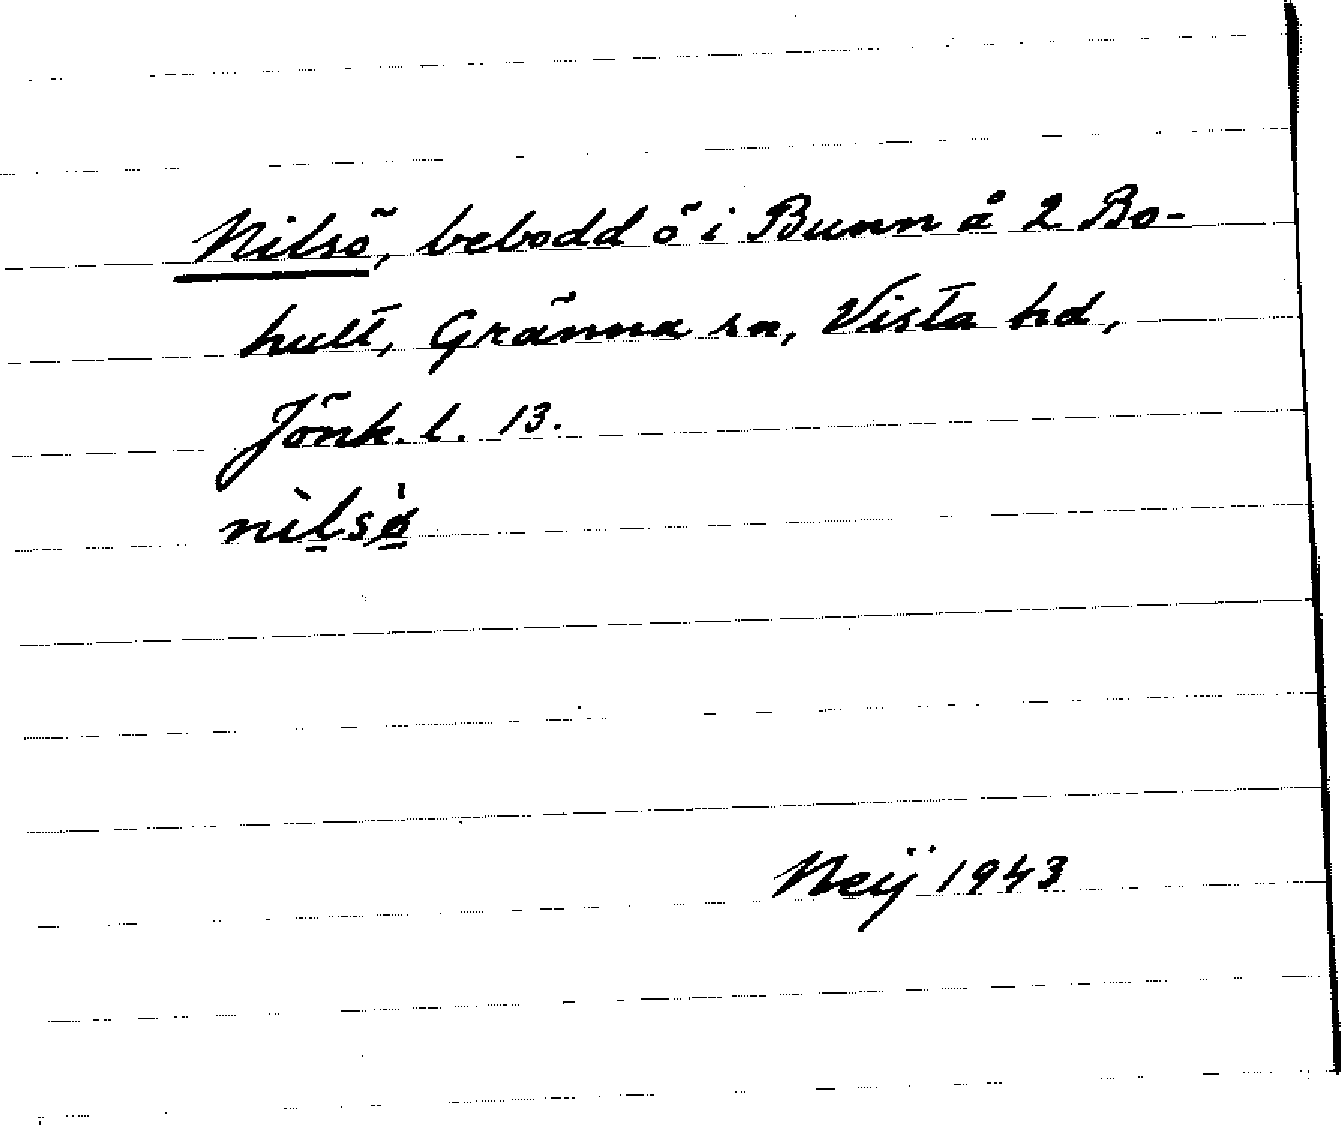 Nilsö, bebodd ö i Bunn å 2 Bo-
hult, Gränna sn, Vista hd,
Jönk. l. 13.
nìlsø̀
Neij 1943